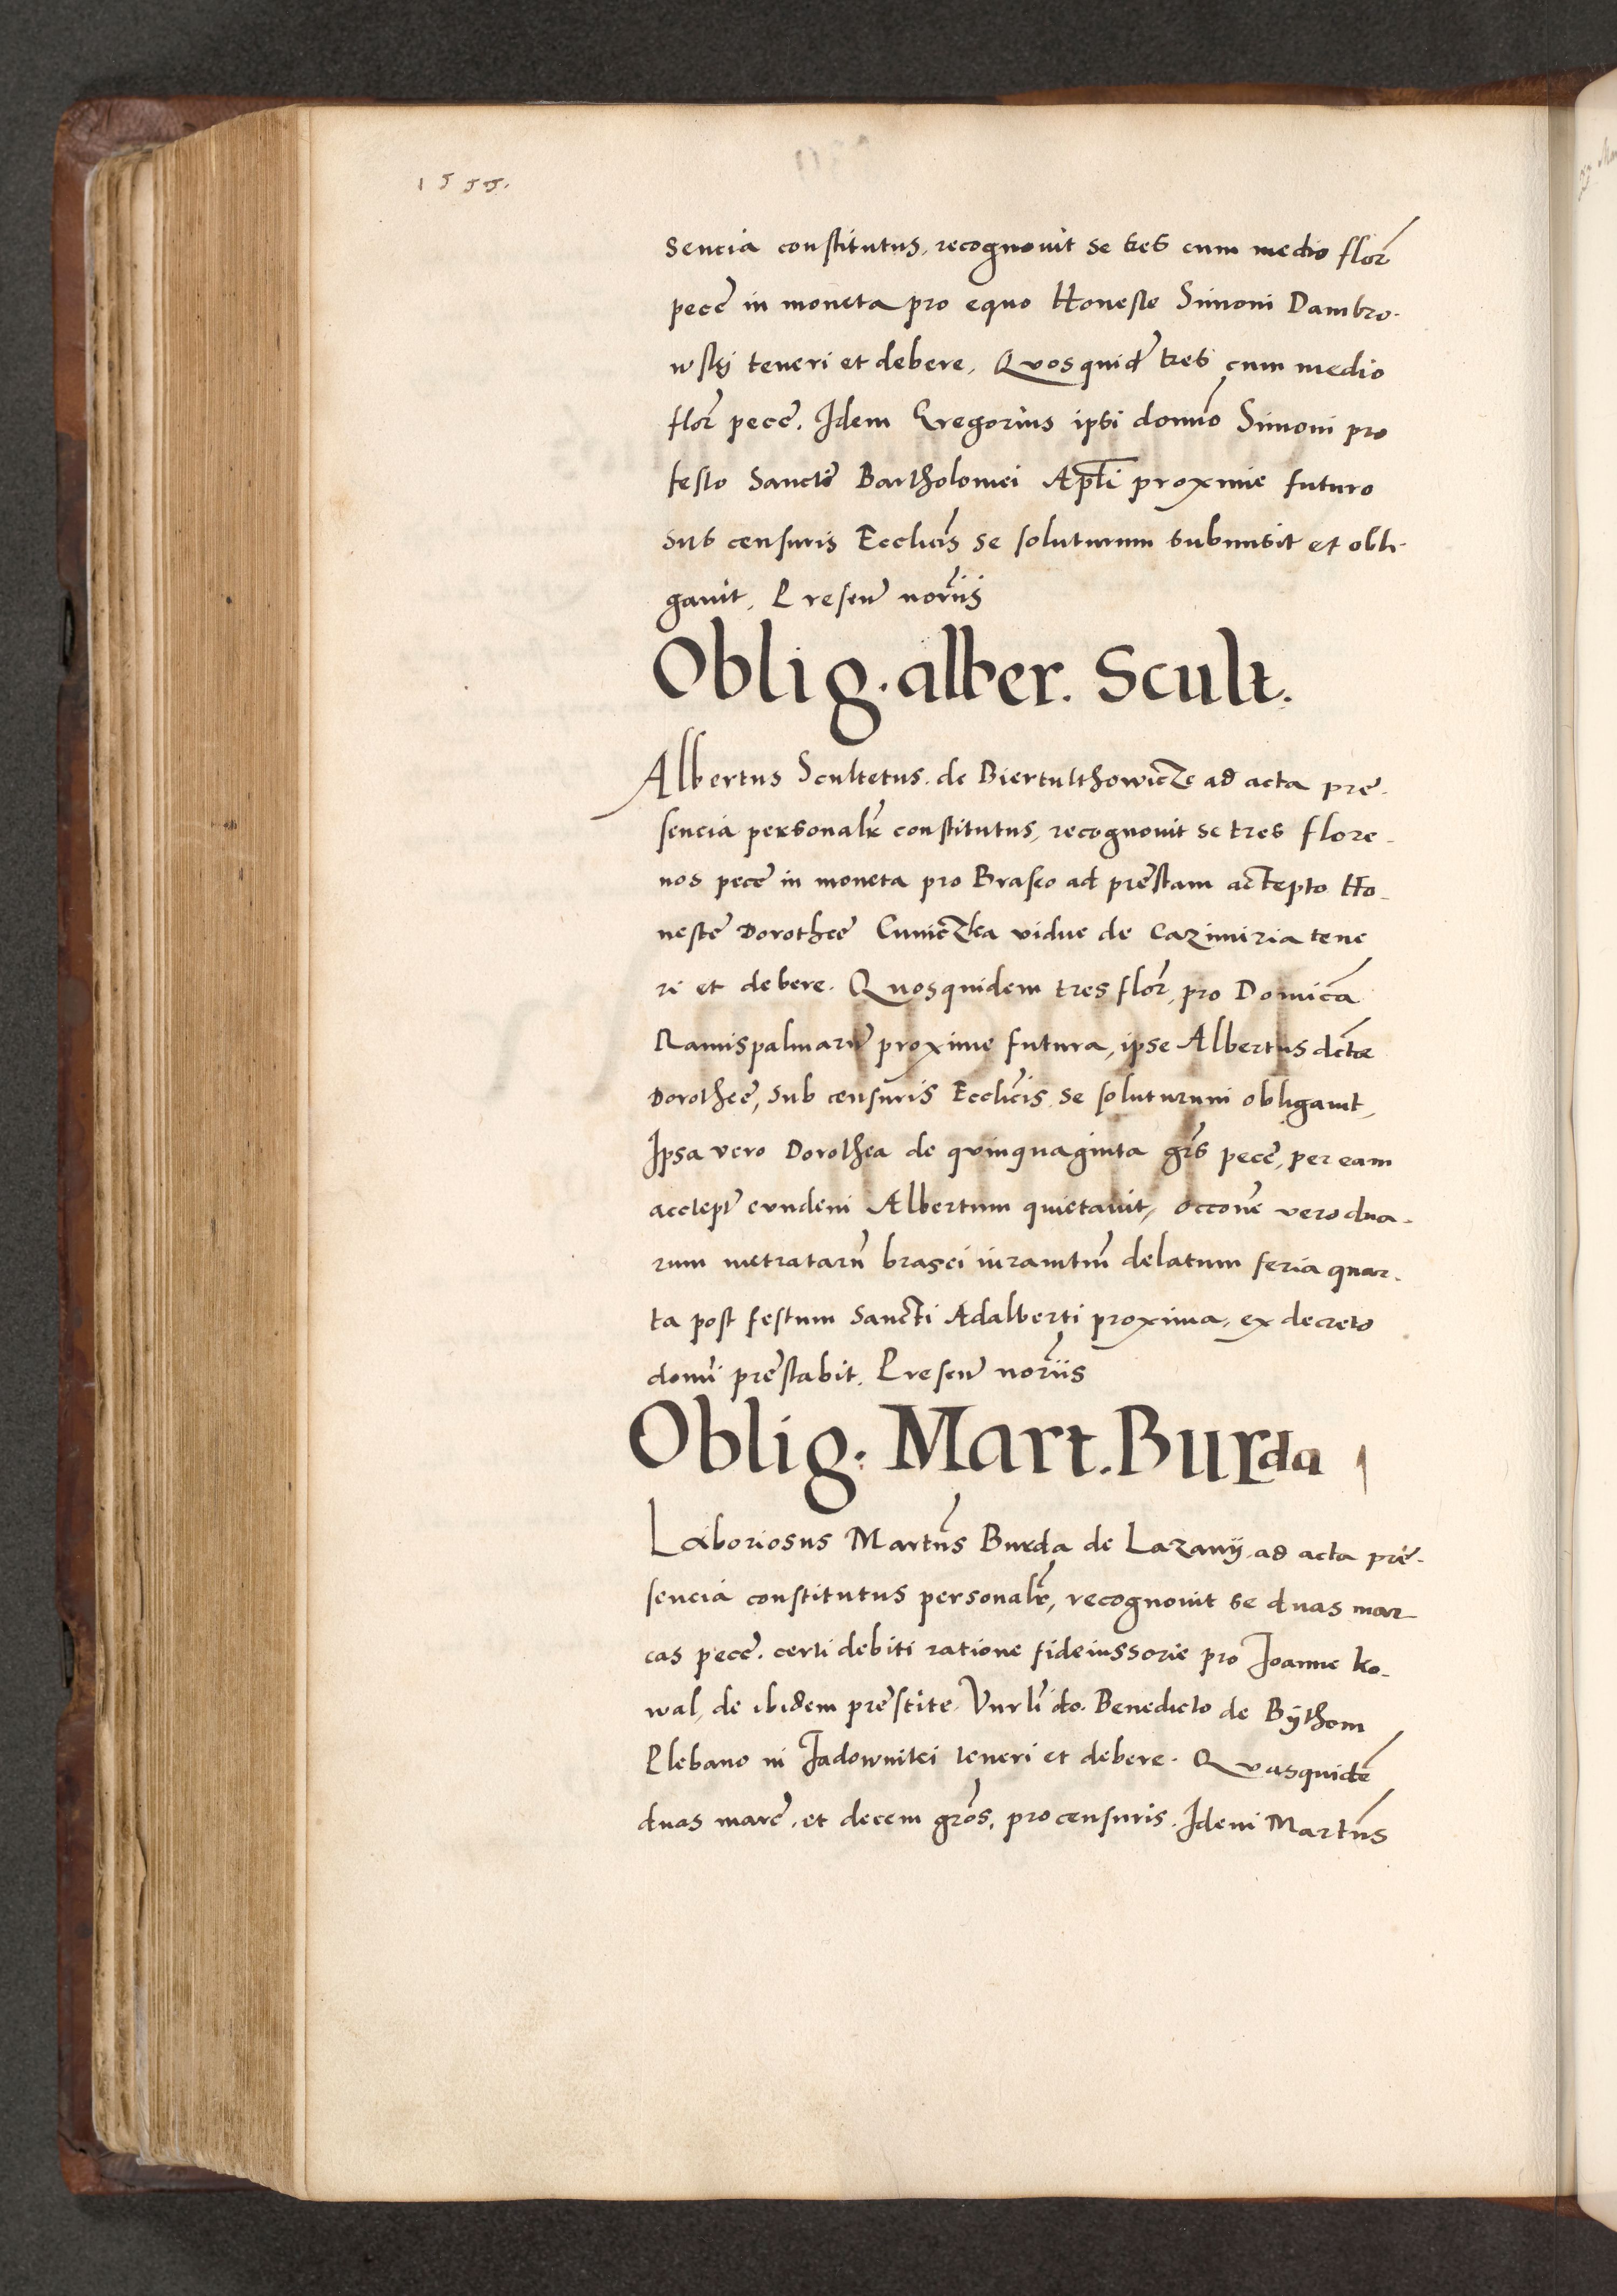 1555.
sencia constitutus, recognouit se tres cum medio flor̃
pecc̃ in moneta pro equo Honeste Simoni Dambro-
wskj teneri et debere, Quosquid̃ tres cum medio
flor̃ pecc̃. Idem Gregorius ipsi domĩo Simoni pro
festo Sancti Bartholomei Apl̃i proxime futuro
sub censuris Ecclic̃is se soluturum submisit et obli-
gauit, Presen̄ nor̃iis
Oblig. alber. Scult.
Albertus Scultetus de Biertulthowicze ad acta pre-
sencia personalr̃ constitutus, recognouit se tres flore-
nos pecc̃ in moneta pro Braseo ad prestam accepto Ho-
neste Dorothee Cuniczka vidue de Cazimiria tene
ri et debere. Quosquidem tres flor̃, pro Domica
Ramispalmarũ proxime futura, ipse Albertus dcte
Dorothee, sub censuris Ecclic̃is se soluturum obligauit,
Ipsa vero Dorothea de quinquaginta gr̃s pecc̃, per eam
accept̃ eundem Albertum quietauit, occone vero dua-
rum metratarũ brasei iuramtm̃ delatum feria quar-
ta post festum Sancti Adalberti proxima, ex decreto
domĩ prestabit. Presen̄ nor̃iis
Oblig: Mart. Burda
Laboriosus Martin̄s Burda de Lazany ad acta pre-
sencia constitutus personalr̃, recognouit se duas mar-
cas pecc̃. certi debiti ratione fideiussorie pro Joanne Ko-
wal, de ibidem prestite. Vnrl̃i do. Benedicto de Bythom
Plebano in Jadownitci teneri et debere. Quasquidẽ
duas marc̃. et decem gr̃os, pro censuris. Idem Martin̄s